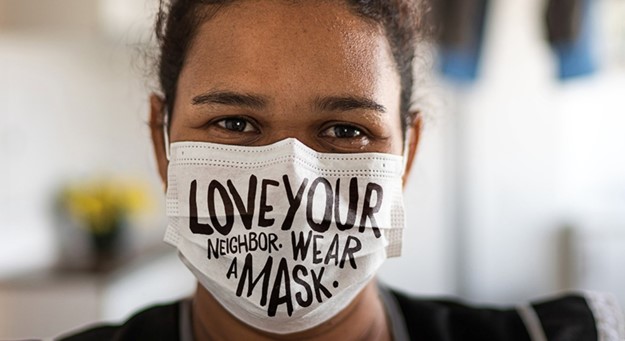 LOVE YOUR
NEIGHBOR. WEAR
A MASK.